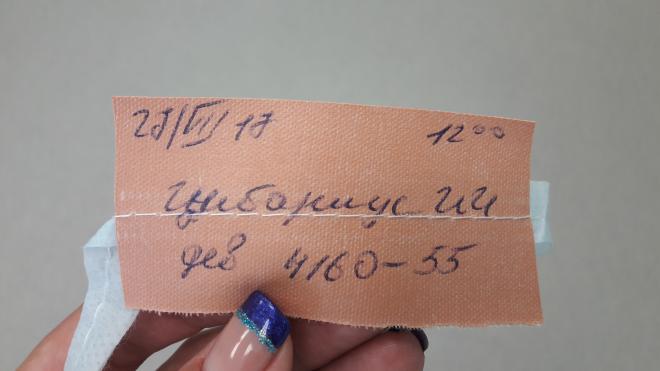 27/VII/17 12⁰⁰
Цибариус И И
дев 4160-55